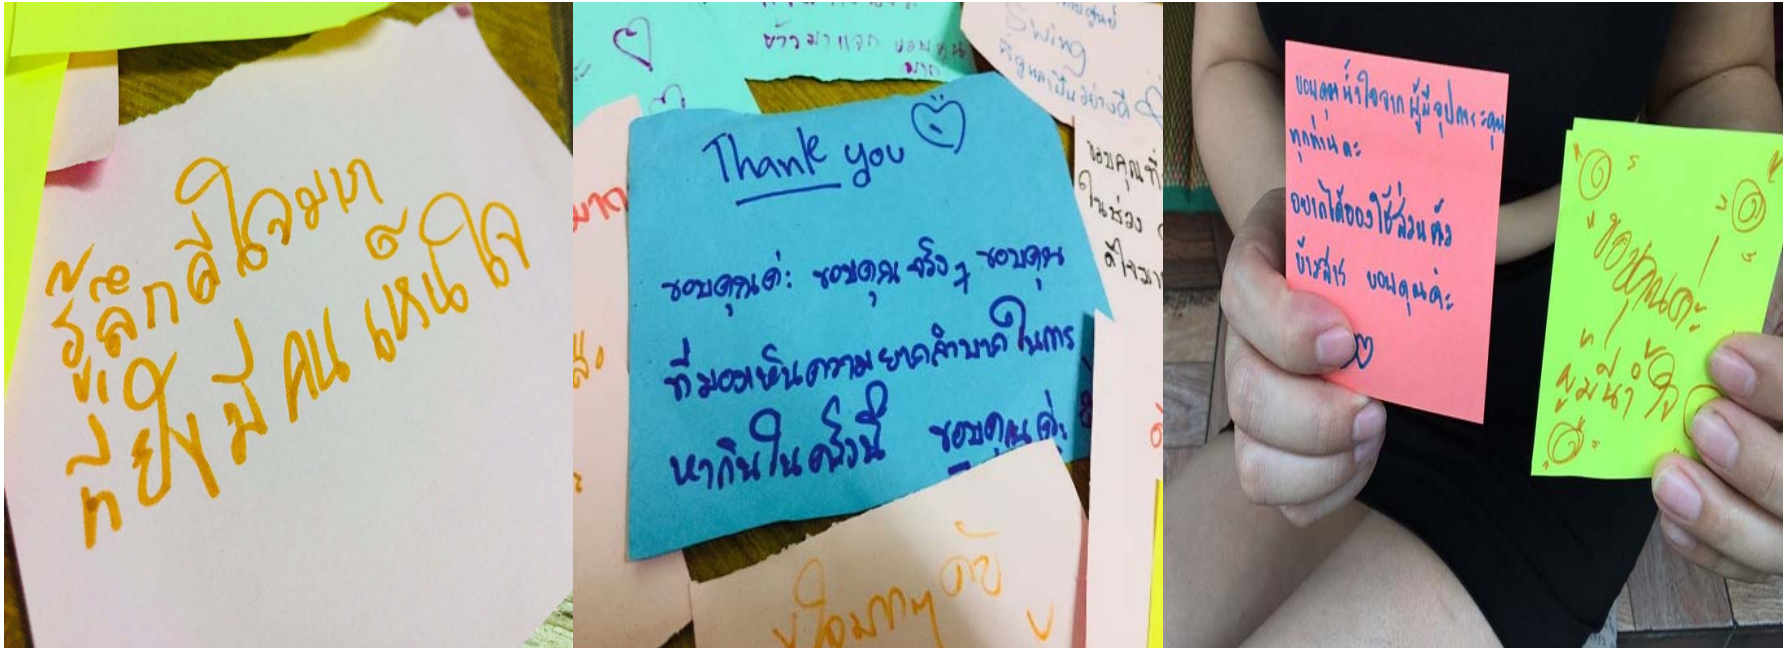 รู้สึกดีใจมาก
ที่ยังมีคนเห็นใจ
ข้าวมาแจก ขอบคุณ
มาก
Swing
ที่ดูแลเป็นอย่างดี
Thank you
ขอบคุณค่ะ ขอบคุณจริงๆ ขอบคุณ
ที่มองเห็นความยากลำบากในการ
หากินในครั้งนี้ ขอบคุณค่ะ
ขอบคุณที่
ในช่วง
ดีใจมา
ใจมากๆ
ขอบคุณน้ำใจจากผู้มีอุปการะคุณ
ทุกท่านคะ
อยากได้ของใช้ส่วนตัว
ข้าวสาร ขอบคุณค่ะ
ขอบคุณค่ะ
ผู้มีน้ำใจ